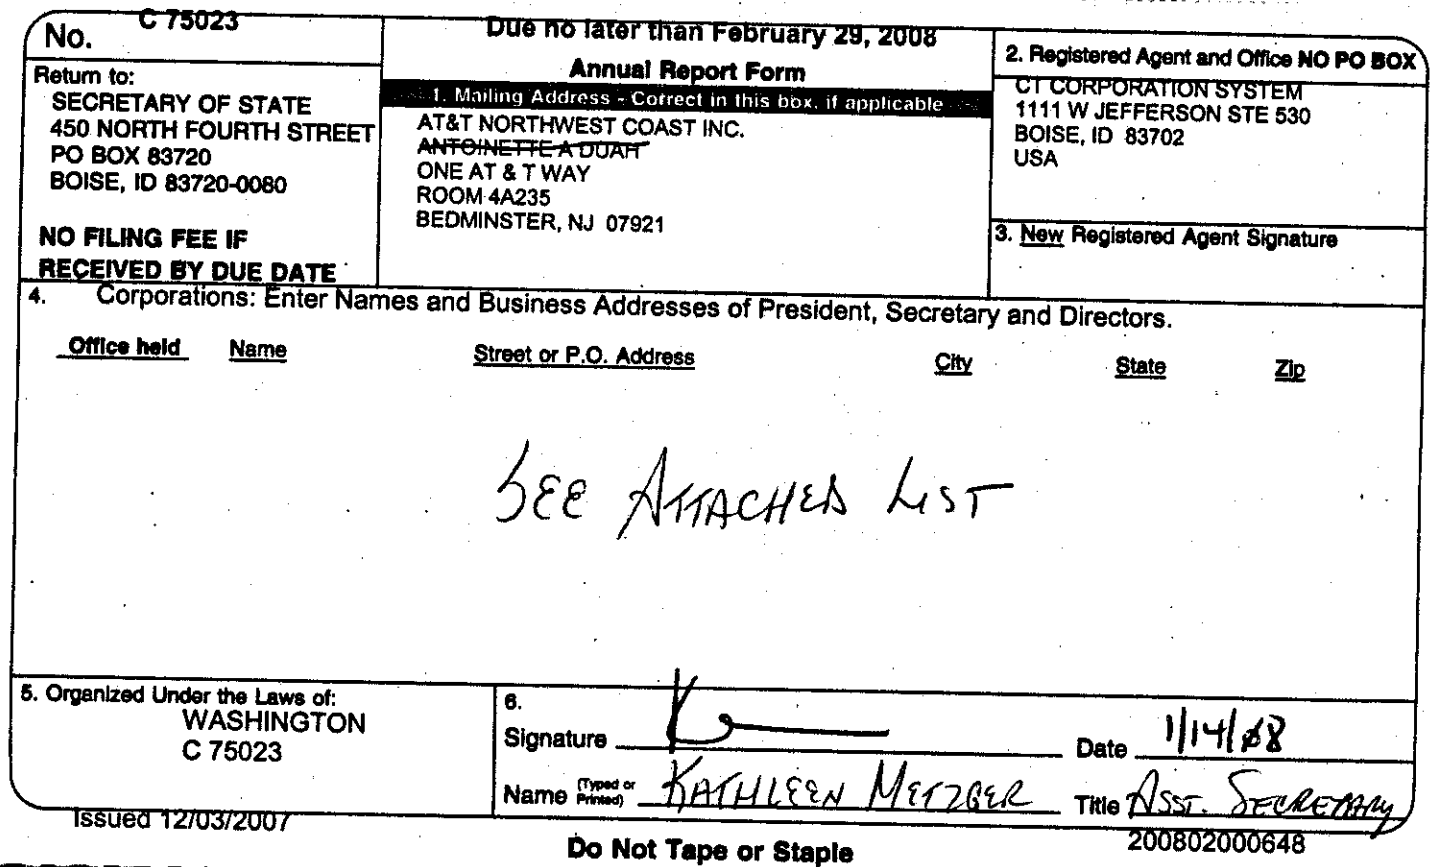 No. C 75023
Return to:
SECRETARY OF STATE
450 NORTH FOURTH STREET
PO BOX 83720
BOISE, ID 83720-0080
NO FILING FEE IF
RECEIVED BY DUE DATE
Due no later than February 29, 2008
Annual Report Form
1. Mailing Address - Correct in this box, if applicable
AT&T NORTHWEST COAST INC.
ANTOINETTE A DUAH
ONE AT & T WAY
ROOM 4A235
BEDMINSTER, NJ 07921
2. Registered Agent and Office NO PO BOX
CT CORPORATION SYSTEM
1111 W JEFFERSON STE 530
BOISE, ID 83702
USA
3. New Registered Agent Signature
4. Corporations: Enter Names and Business Addresses of President, Secretary and Directors.
Office held Name Street or P.O. Address City State Zip
SEE ATTACHED LIST
5. Organized Under the Laws of:
WASHINGTON
C 75023
6.
Signature Date 1/14/08
Name (Typed or Printed) KATHLEEN METZGER Title ASST. SECRETARY
Issued 12/03/2007
Do Not Tape or Staple
200802000648